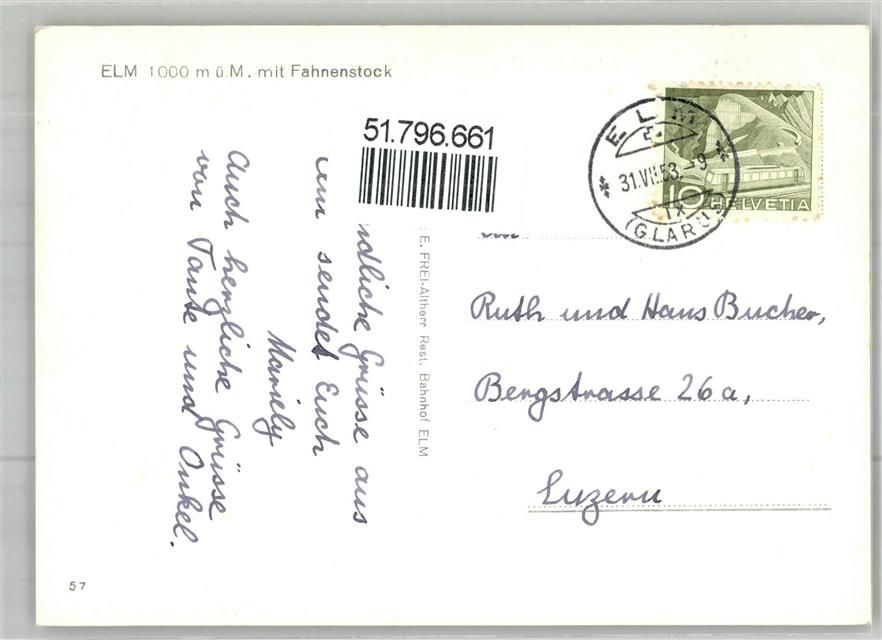 ELM 1000 m ü. M. mit Fahnenstock
51.796.661
ndliche Grüsse aus
sendet Euch
Mariely
Auch herzliche Grüsse
von Tante und Onkel.
E. FREI-Altherr Rest. Bahnhof ELM
ELM
31.VII.53.-9
(GLARUS)
10 HELVETIA
Ruth und Hans Bucher,
Bergstrasse 26a,
Luzern
57